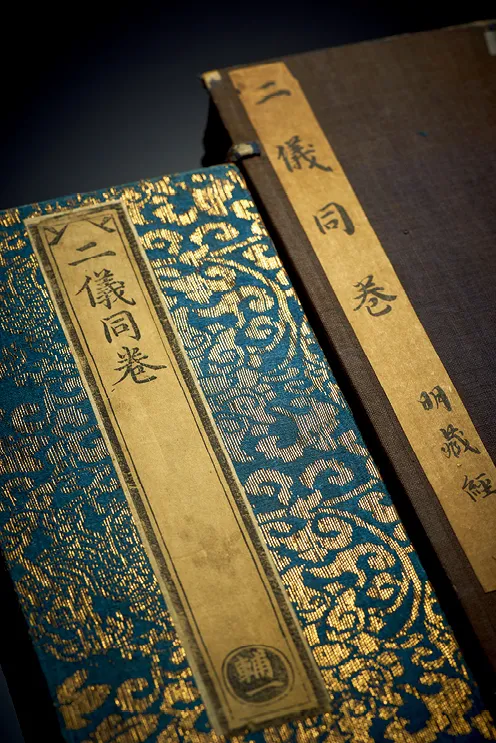 二儀同卷
輔一
二儀同卷
明藏經